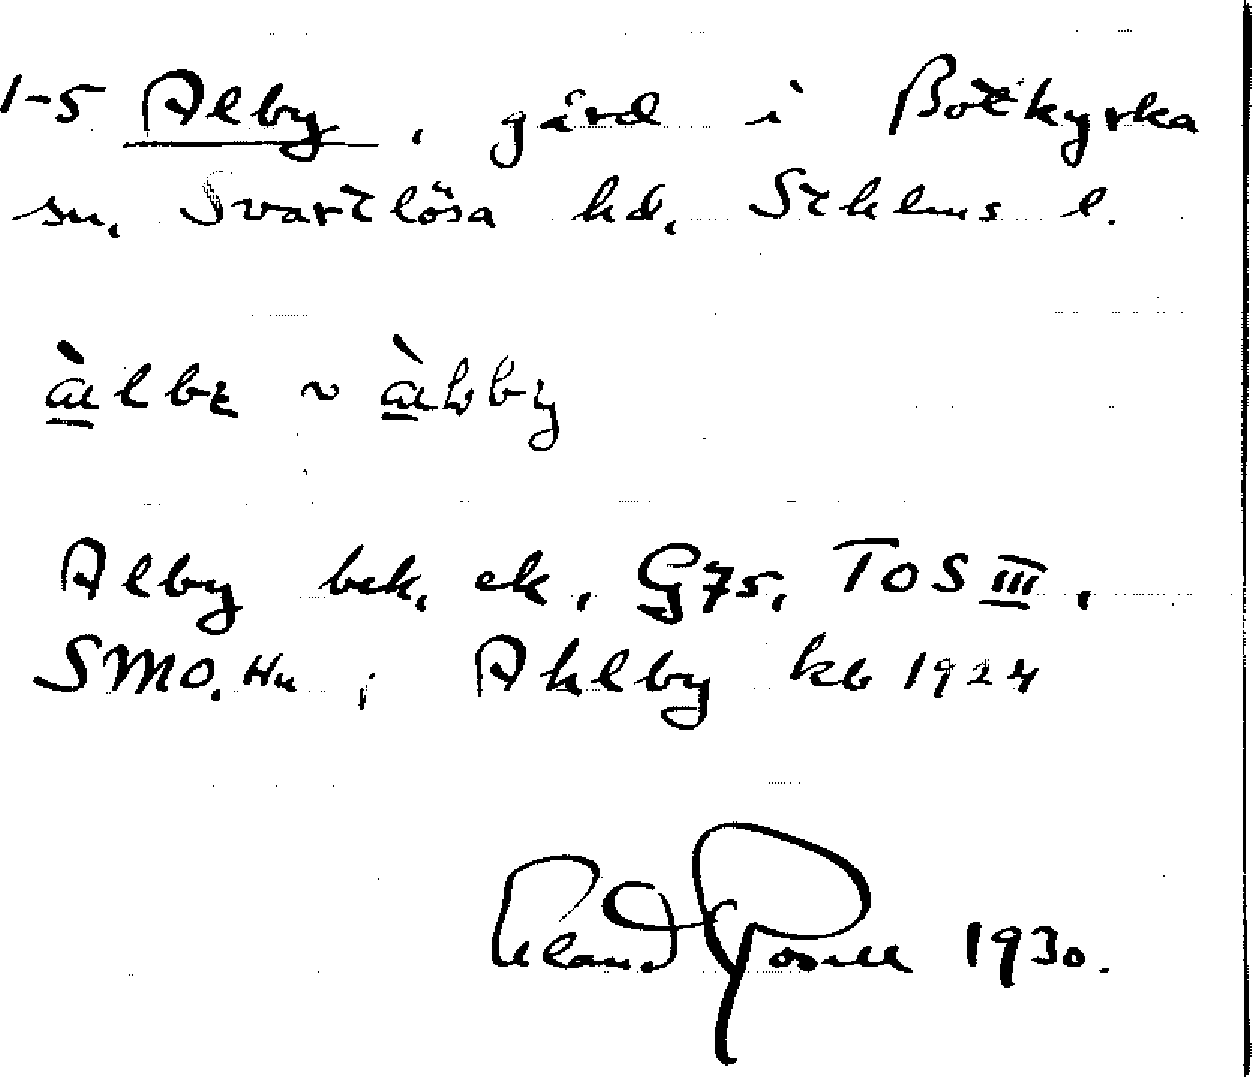 1-5 Alby, gård i Botkyrka
sn, Svartlösa hd, Sthlms l.
Alby bek. ek., G75, TOS III,
SMO. Hu; Ahlby kb 1924
Erland Rosell 1930.